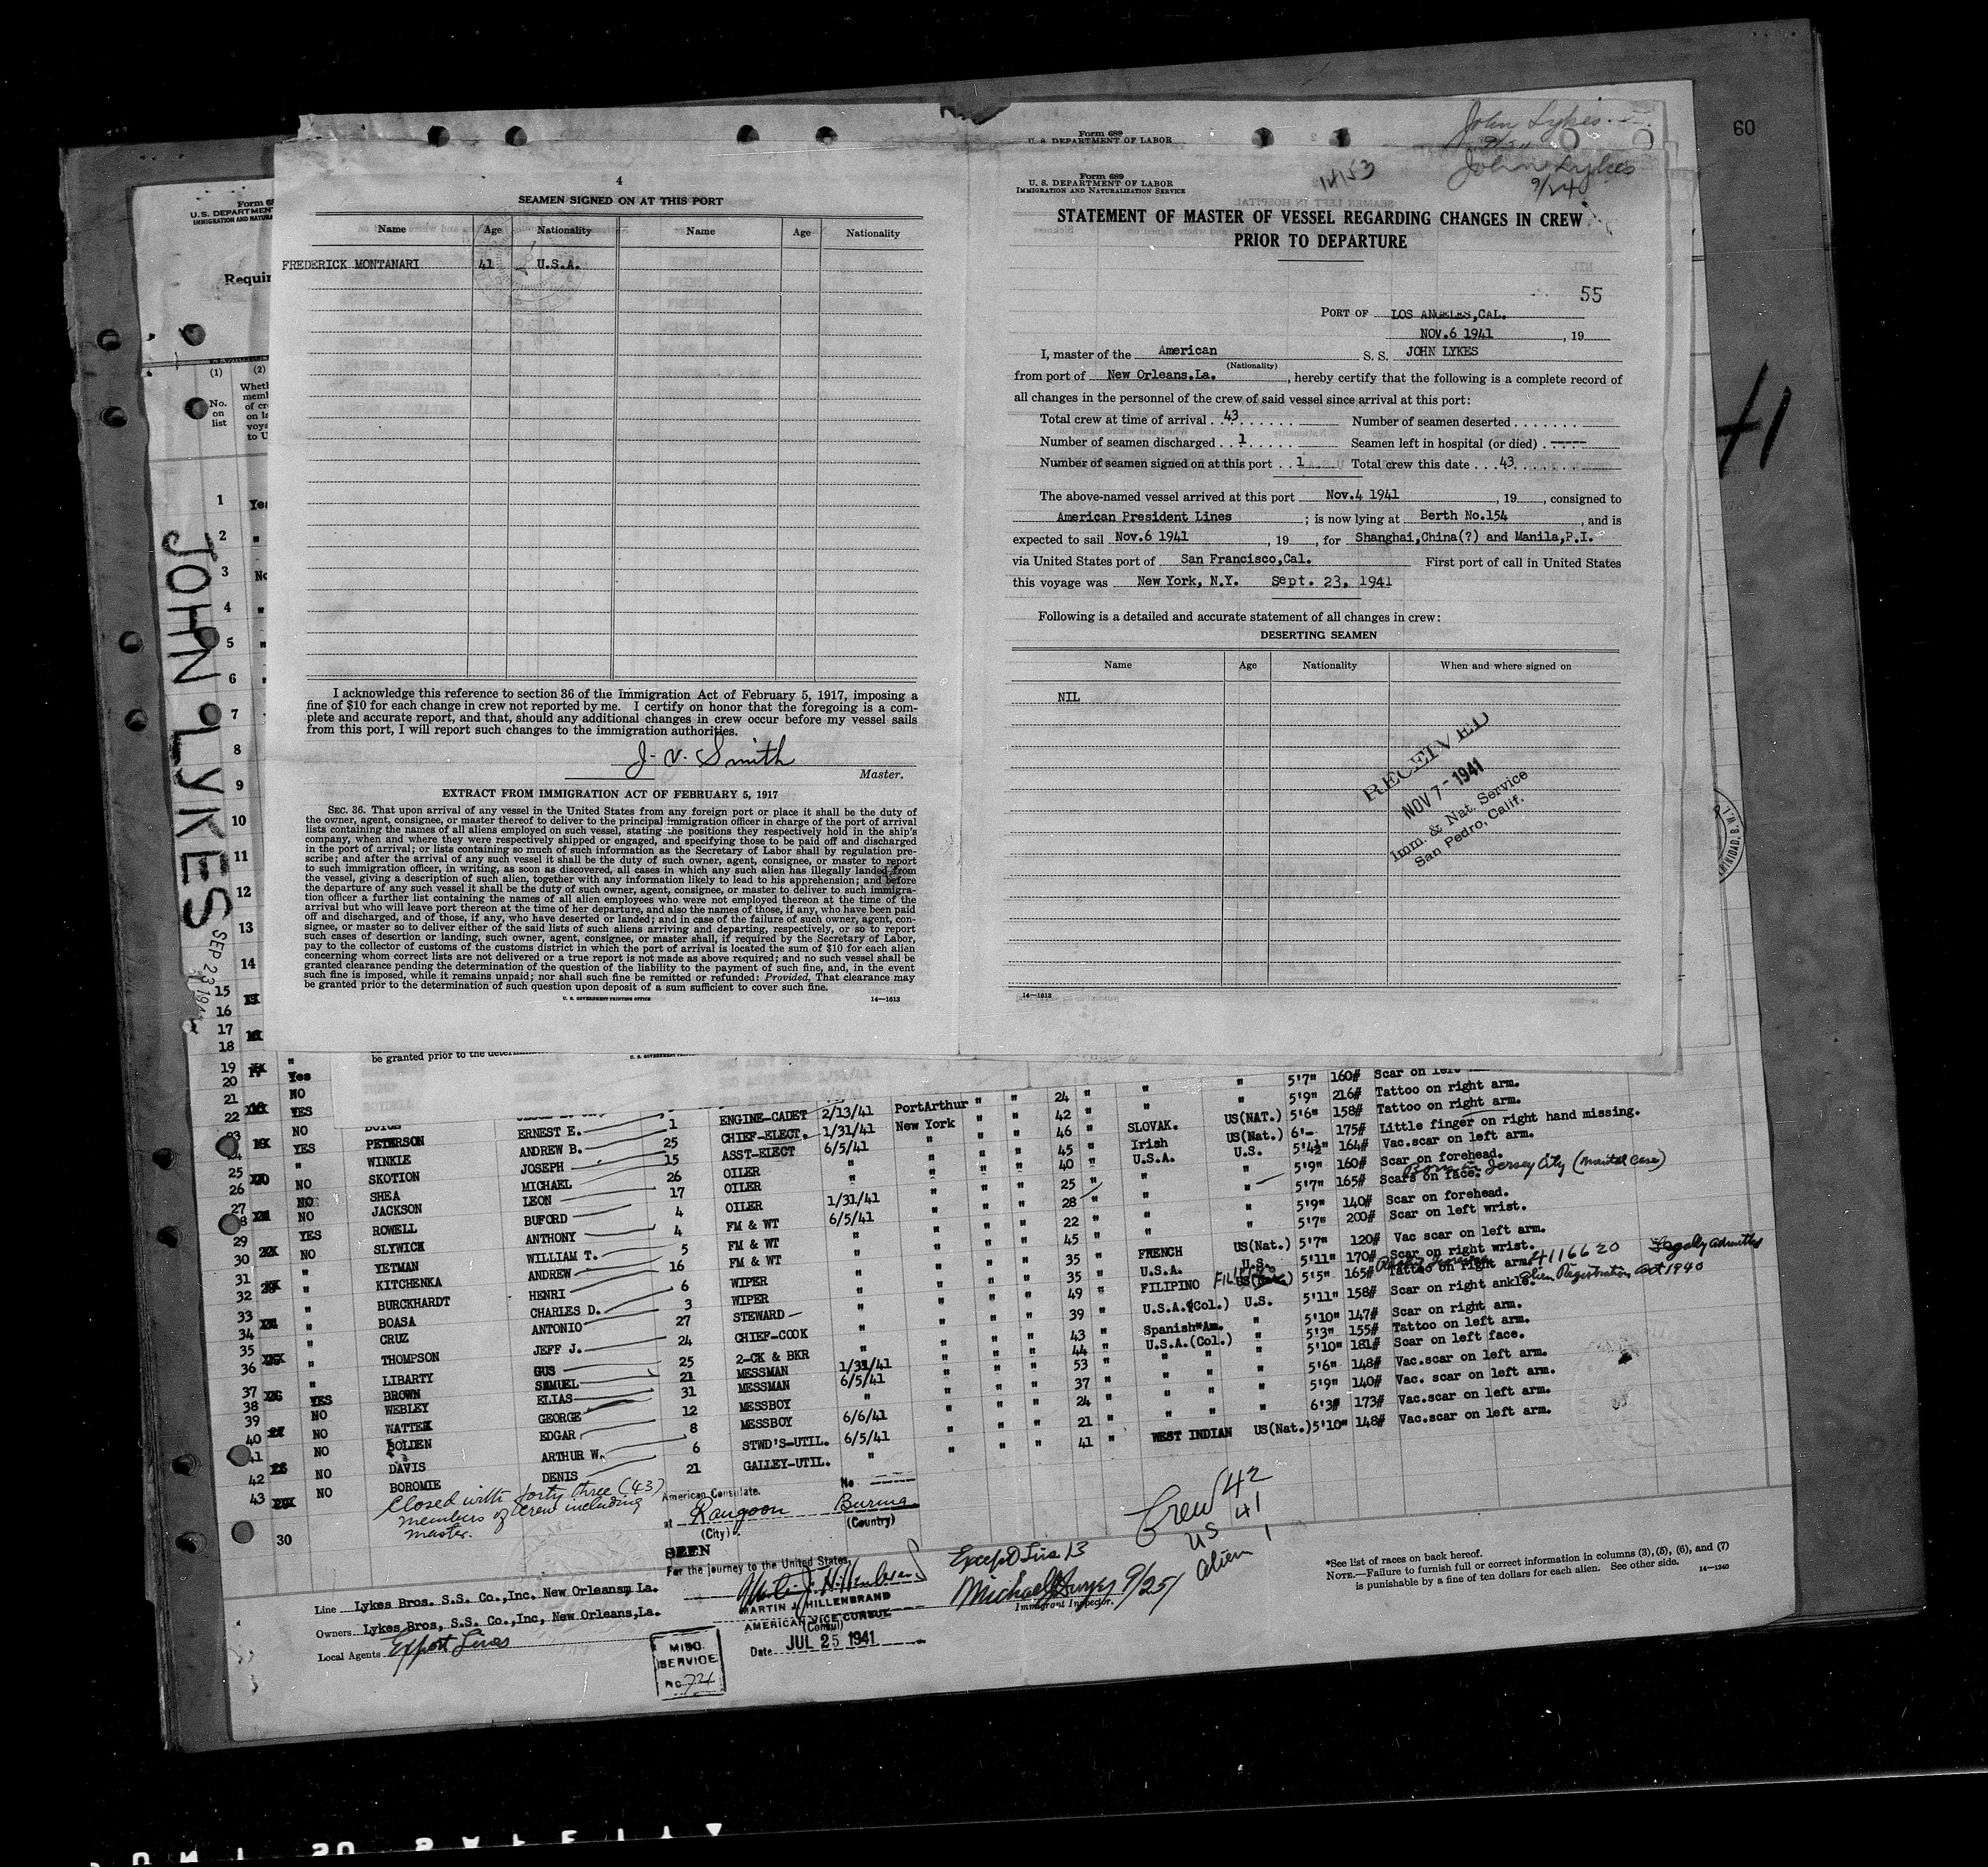 60
John Lykes
John Lykes
9/24
Form 689
U. S. DEPARTMENT OF LABOR
4
SEAMEN SIGNED ON AT THIS PORT
Name Age Nationality Name Age Nationality
FREDERICK MONTANARI 41 U.S.A.
I acknowledge this reference to section 36 of the Immigration Act of February 5, 1917, imposing a
fine of $10 for each change in crew not reported by me. I certify on honor that the foregoing is a com-
plete and accurate report, and that, should any additional changes in crew occur before my vessel sails
from this port, I will report such changes to the immigration authorities.
J. V. Smith
Master.
EXTRACT FROM IMMIGRATION ACT OF FEBRUARY 5, 1917
SEC. 36. That upon arrival of any vessel in the United States from any foreign port or place it shall be the duty of
the owner, agent, consignee, or master thereof to deliver to the principal immigration officer in charge of the port of arrival
lists containing the names of all aliens employed on such vessel, stating the positions they respectively hold in the ship's
company, when and where they were respectively shipped or engaged, and specifying those to be paid off and discharged
in the port of arrival; or lists containing so much of such information as the Secretary of Labor shall by regulation pre-
scribe; and after the arrival of any such vessel it shall be the duty of such owner, agent, consignee, or master to report
to such immigration officer, in writing, as soon as discovered, all cases in which any such alien has illegally landed from
the vessel, giving a description of such alien, together with any information likely to lead to his apprehension; and before
the departure of any such vessel it shall be the duty of such owner, agent, consignee, or master to deliver to such immigra-
tion officer a further list containing the names of all alien employees who were not employed thereon at the time of the
arrival but who will leave port thereon at the time of her departure, and also the names of those, if any, who have been paid
off and discharged, and of those, if any, who have deserted or landed; and in case of the failure of such owner, agent, con-
signee, or master so to deliver either of the said lists of such aliens arriving and departing, respectively, or so to report
such cases of desertion or landing, such owner, agent, consignee, or master shall, if required by the Secretary of Labor,
pay to the collector of customs of the customs district in which the port of arrival is located the sum of $10 for each alien
concerning whom correct lists are not delivered or a true report is not made as above required; and no such vessel shall be
granted clearance pending the determination of the question of the liability to the payment of such fine, and, in the event
such fine is imposed, while it remains unpaid; nor shall such fine be remitted or refunded: Provided, That clearance may
be granted prior to the determination of such question upon deposit of a sum sufficient to cover such fine.
U. S. GOVERNMENT PRINTING OFFICE 14—1613
Form 689
U. S. DEPARTMENT OF LABOR
IMMIGRATION AND NATURALIZATION SERVICE
STATEMENT OF MASTER OF VESSEL REGARDING CHANGES IN CREW
PRIOR TO DEPARTURE
55
PORT OF LOS ANGELES,CAL.
NOV.6 1941, 19
I, master of the American S. S. JOHN LYKES
(Nationality)
from port of New Orleans.La., hereby certify that the following is a complete record of
all changes in the personnel of the crew of said vessel since arrival at this port:
Total crew at time of arrival . . 43 Number of seamen deserted
Number of seamen discharged . . 1 Seamen left in hospital (or died) . -----
Number of seamen signed on at this port . . 1 Total crew this date . . . 43
The above-named vessel arrived at this port Nov.4 1941, 19, consigned to
American President Lines; is now lying at Berth No.154, and is
expected to sail Nov.6 1941, 19, for Shanghai,China(?) and Manila,P.I.
via United States port of San Francisco,Cal. First port of call in United States
this voyage was New York, N.Y. Sept. 23, 1941
Following is a detailed and accurate statement of all changes in crew:
DESERTING SEAMEN
Name Age Nationality When and where signed on
NIL
RECEIVED
NOV 7 - 1941
Imm. & Nat. Service
San Pedro, Calif.
14—1613
41
JOHN LYKES
SEP 23 19
Requir
(1) (2)
No.
on
list
1 Yes
2 "
3 No
4 "
5 "
6
7
8
9
10
11
12
13
14
15
16
17
18
19 "
20 Yes
21 NO
22 YES
be granted prior to the
5'7" 160# Scar on left
24 " " " 5'9" 216# Tattoo on right arm.
ERNEST E. 1 ENGINE-CADET 2/13/41 PortArthur " " 42 " " US(NAT.) 5'6" 158# Tattoo on right arm.
PETERSON ANDREW B. 25 CHIEF-ELECT. 1/31/41 New York " " 46 " SLOVAK. US(Nat.) 6'- 175# Little finger on right hand missing.
WINKLE JOSEPH 15 ASST-ELECT 6/5/41 " " " 45 " Irish U.S. 5'4½" 164# Vac.scar on left arm.
SKOTION MICHAEL 26 OILER " " " " 40 " U.S.A. " 5'9" 160# Scar on forehead.
Born in Jersey City (mental case)
SHEA LEON 17 OILER " " " " 25 " " " 5'7" 165# Scars on face.
JACKSON BUFORD 4 OILER 1/31/41 " " " 28 " " 5'9" 140# Scar on forehead.
ROWELL ANTHONY 4 FM & WT 6/5/41 " " " 22 " " 5'7" 200# Scar on left wrist.
SLYWICH WILLIAM T. 5 FM & WT " " " " 45 " " US(Nat.) 5'7" 120# Vac scar on left arm.
YETMAN ANDREW 16 FM & WT " " " " 35 " FRENCH U.S. 5'11" 170# Scar on right wrist.
KITCHENKA HENRI 6 WIPER " " " " 35 " U.S.A. 5'5" 165# Tattoo on right arm.
4116620 Legally admitted
Alien Registration Act 1940
BURCKHARDT CHARLES D. 3 WIPER " " " " 49 " FILIPINO 5'11" 158# Scar on right ankle.
BOASA ANTONIO 27 STEWARD " " " " 39 " U.S.A.(Col.) U.S. 5'10" 147# Scar on right arm.
CRUZ JEFF J. 24 CHIEF-COOK " " " " 43 " Spanish*Am. " 5'3" 155# Tattoo on left arm.
THOMPSON GUS 25 2-CK & BKR " " " " 44 " U.S.A.(Col.) " 5'10" 181# Scar on left face.
LIBARTY SAMUEL 21 MESSMAN 1/31/41 " " " 53 " " " " 5'6" 148# Vac.scar on left arm.
BROWN ELIAS 31 MESSMAN 6/5/41 " " " 37 " " " " 5'9" 140# Vac. scar on left arm.
WEBLEY GEORGE 12 MESSBOY " " " " 24 " " " " 6'3# 173# Vac.scar on left arm.
WATTEK EDGAR 8 MESSBOY 6/6/41 " " " 21 " " " "
BOLDEN ARTHUR W. 6 STWD'S-UTIL. 6/5/41 " " " 41 " WEST INDIAN US(Nat.) 5'10" 148# Vac.scar on left arm.
DAVIS DENIS 21 GALLEY-UTIL. "
BOROMIE
25
26
27
29
30
31
32
33
34
35
36
37
38
39
40
41
42
43
30
Closed with forty three (43)
members of crew including
master.
American Consulate. No ----
at Rangoon Burma
(City) (Country)
SEEN
For the journey to the United States,
MARTIN J. HILLENBRAND
AMERICAN VICE CONSUL
(Consul)
Date JUL 25 1941
Except Line 13
9/25/
Immigrant Inspector.
Crew 42
US 41
Alien 1
Line Lykes Bros. S.S. Co.,Inc. New Orleans, La.
Owners Lykes Bros, S.S. Co.,Inc, New Orleans,La.
Local Agents Export Lines
MISC.
SERVICE
NO 724
*See list of races on back hereof.
NOTE.—Failure to furnish full or correct information in columns (3), (5), (6), and (7)
is punishable by a fine of ten dollars for each alien. See other side.
14—1240